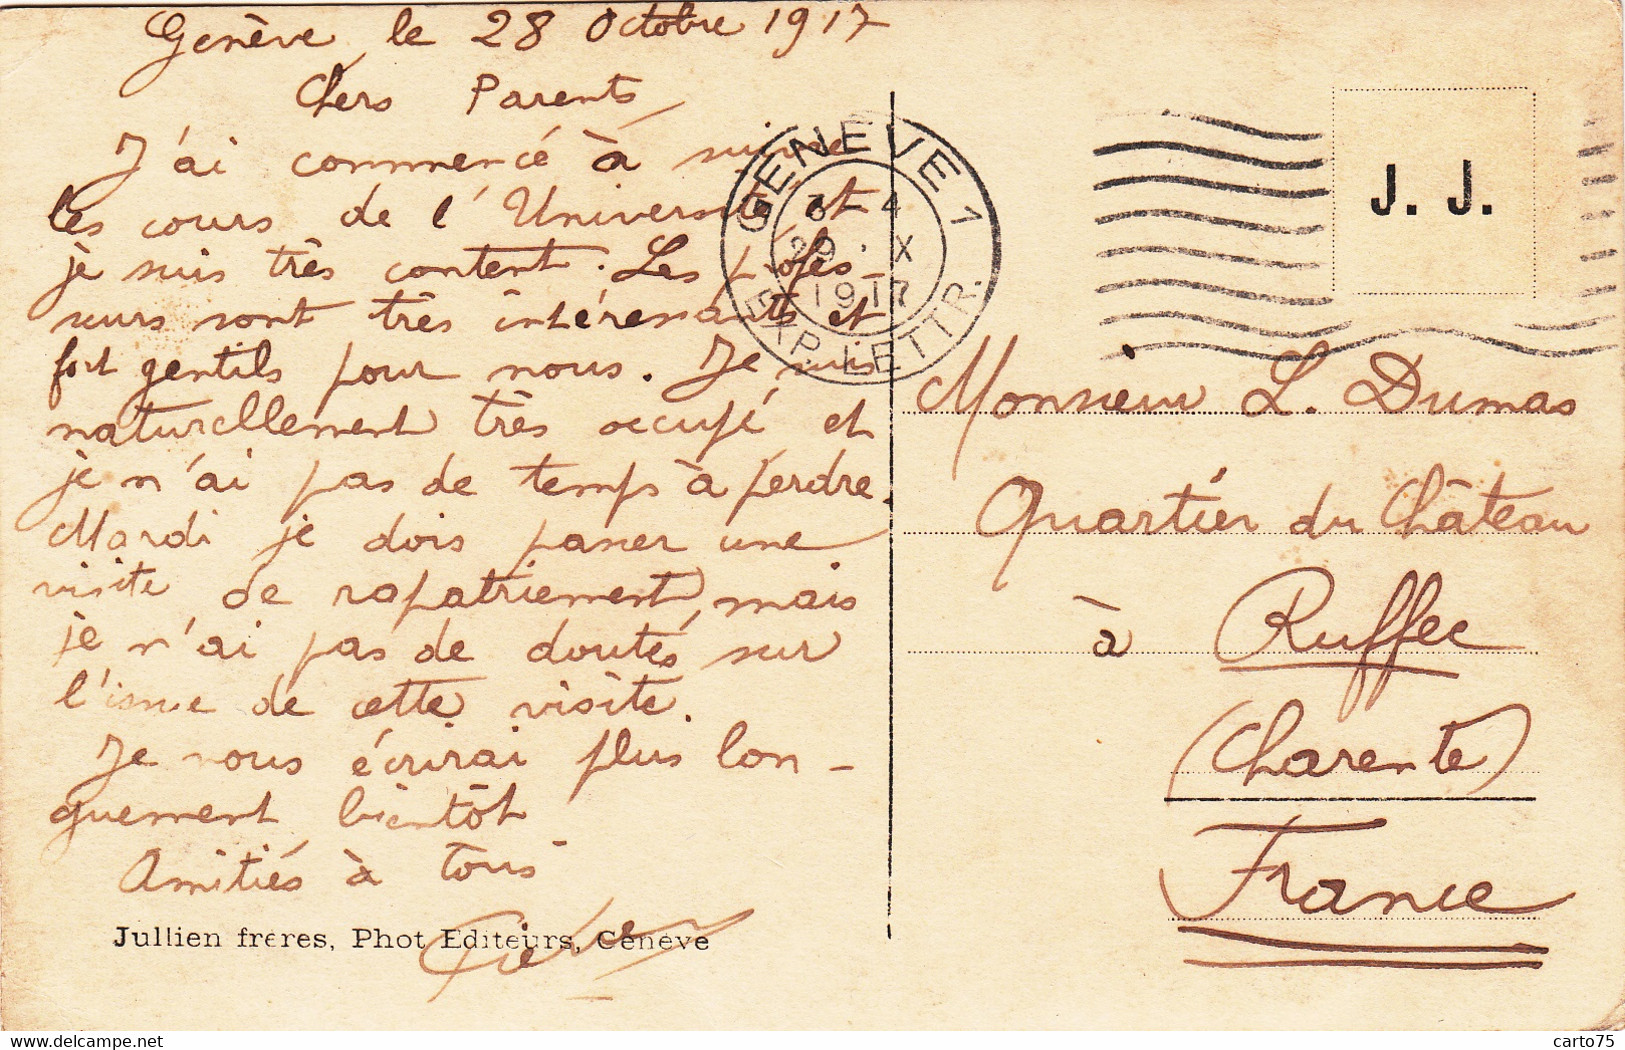 Genève, le 28 Octobre 1917
Chers Parents,
J'ai commencé à suivre
les cours de l'Université et
je suis très content. Les profes-
seurs sont très intéressants et
fort gentils pour nous. Je suis
naturellement très occupé et
je n'ai pas de temps à perdre.
Mardi je dois passer une
visite de rapatriement, mais
je n'ai pas de doutes sur
l'issue de cette visite.
Je vous écrirai plus lon-
guement bientôt
Amitiés à tous
Jullien frères, Phot Editeurs, Genève
GENÈVE 1
3-4
29. X
1917
EXP. LETTR.
J. J.
Monsieur L. Dumas
Quartier du Château
à Ruffec
(Charente)
France
carto75